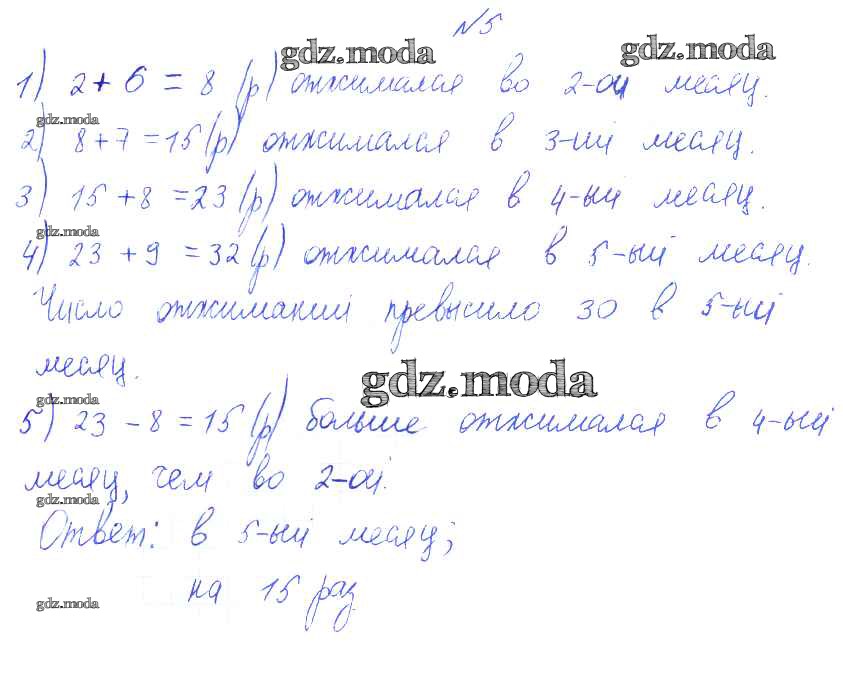 №5
gdz.moda gdz.moda
1) 2 + 6 = 8 (р) отжимался во 2-ой месяц.
gdz.moda
2) 8 + 7 = 15 (р) отжимался в 3-ий месяц.
3) 15 + 8 = 23 (р) отжимался в 4-ый месяц.
gdz.moda
4) 23 + 9 = 32 (р) отжимался в 5-ый месяц.
Число отжиманий превысило 30 в 5-ый
месяц.
gdz.moda
gdz.moda
5) 23 - 8 = 15 (р) больше отжимался в 4-ый
месяц, чем во 2-ой.
gdz.moda
Ответ: в 5-ый месяц;
на 15 раз
gdz.moda